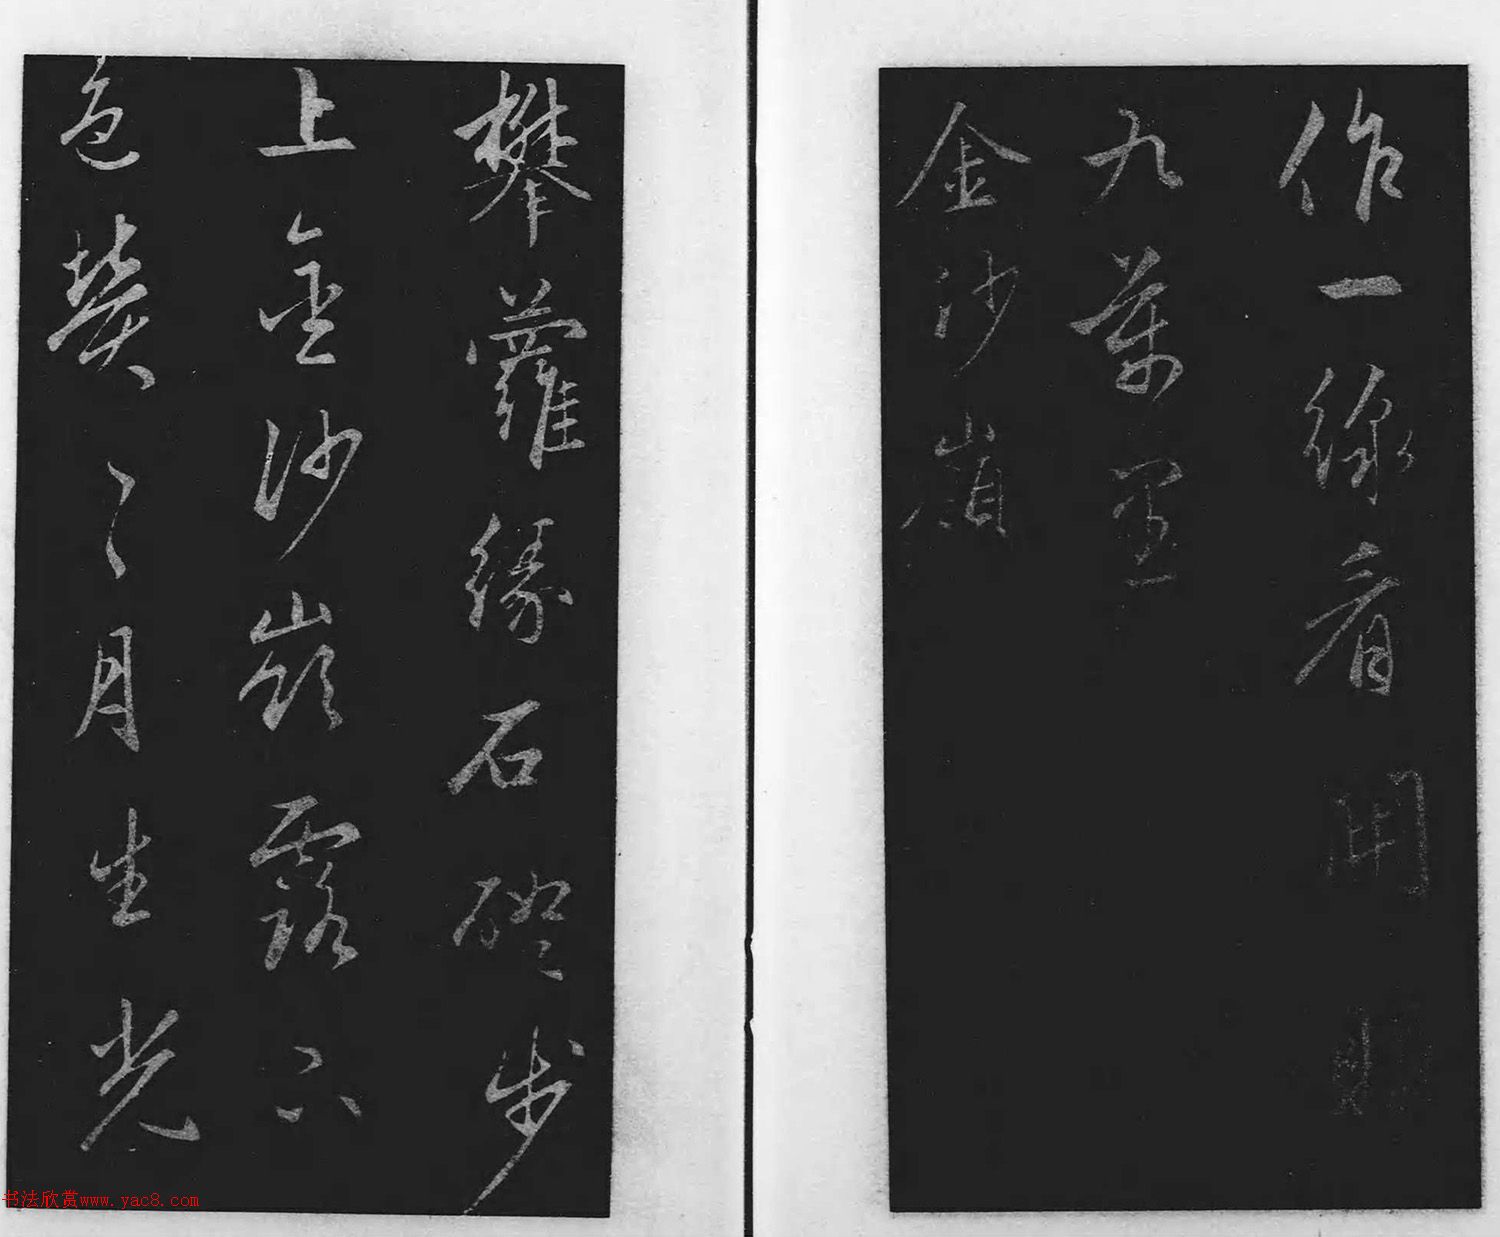 作一線看開
九萬
金沙嶺
攀蘿緣石磴步
上金沙嶺露下
色熒〻月生光
书法欣赏www.yac8.com